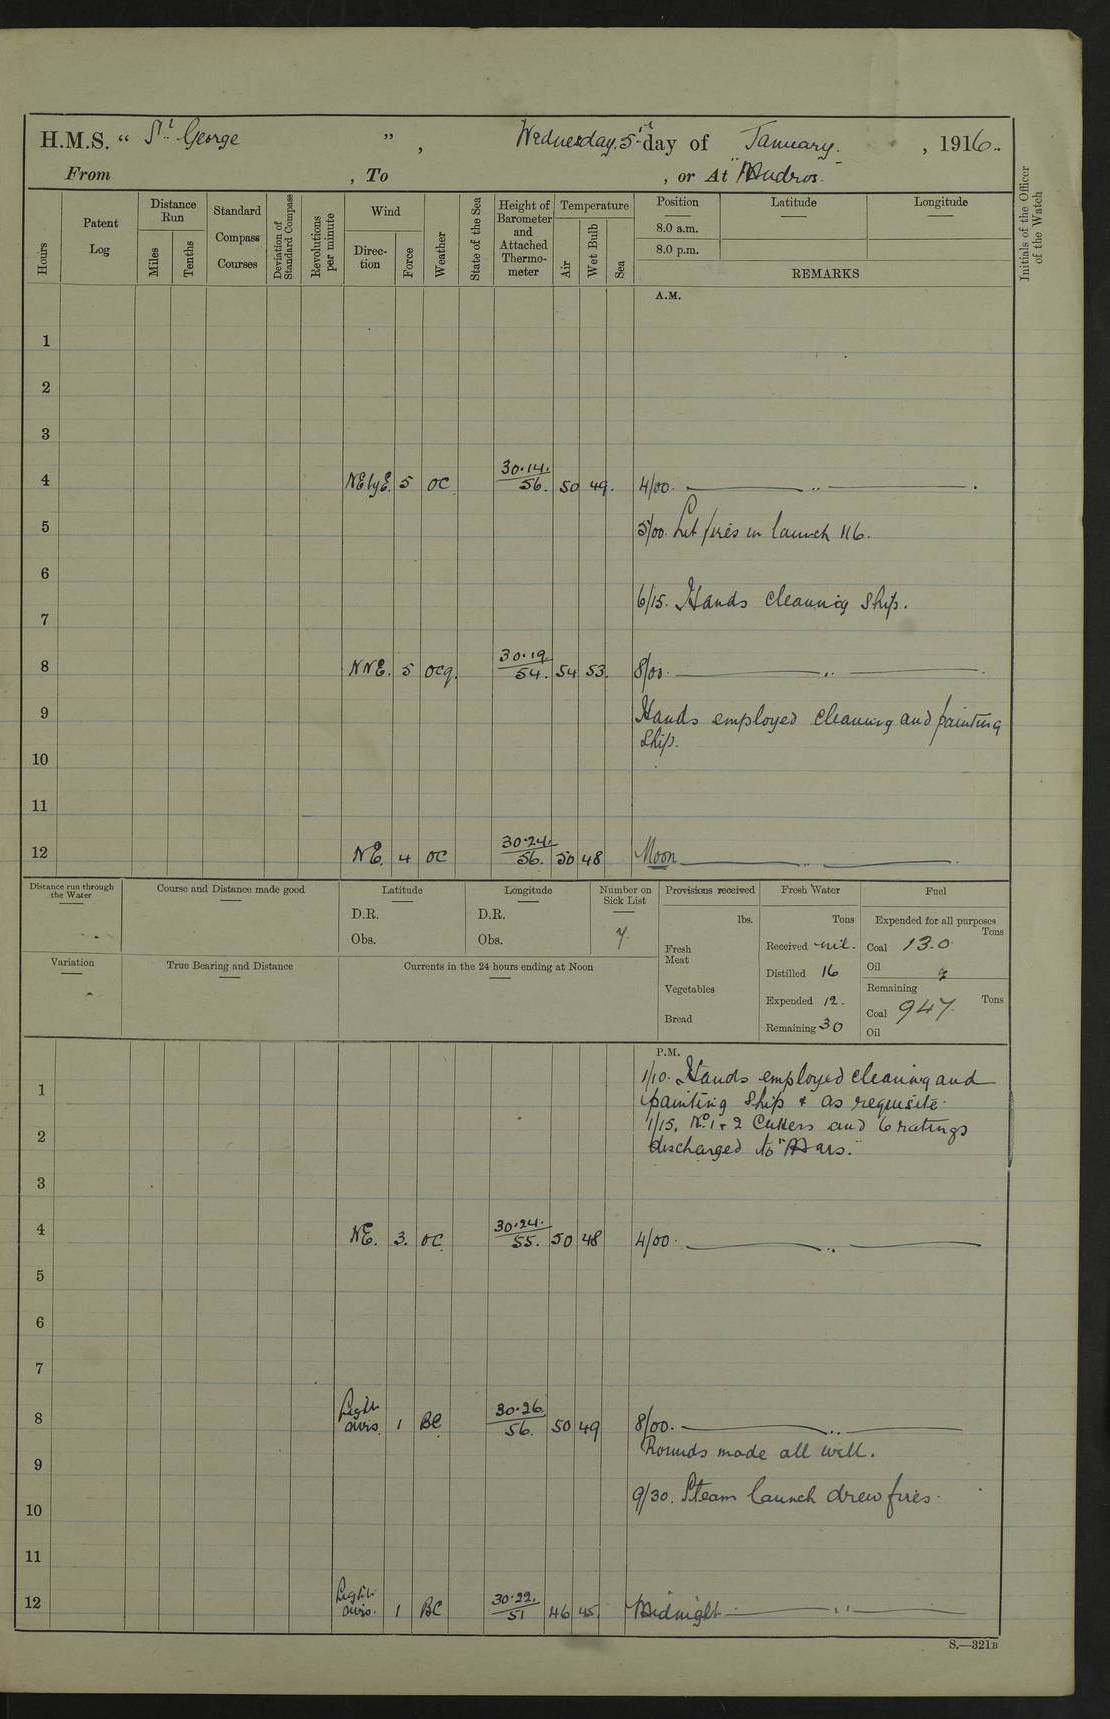 H.M.S. “ St. George ” , Wednesday 5th day of January , 1916.
From , To , or At "Mudros"
Hours
Patent Log
Distance Run
Miles
Tenths
Standard Compass Courses
Deviation of Standard Compass
Revolutions per minute
Wind
Direction
Force
Weather
State of the Sea
Height of Barometer and Attached Thermometer
Temperature
Air
Wet Bulb
Sea
Position
8.0 a.m.
8.0 p.m.
Latitude
Longitude
REMARKS
Initials of the Officer of the Watch
A.M.
1
2
3
4 NE by E. 5 OC 30.14. 56. 50 49. 4/00. ——— .. ———.
5 5/00. Lit fires in launch 116.
6
6/15. Hands cleaning ship.
7
8 NNE. 5 ocq. 30.19 54. 54 53. 8/00. ——— .. ———
9 Hands employed cleaning and painting
ship.
10
11
12 NE. 4 OC 30.24. 56. 50 48 Noon ——— .. ———.
Distance run through the Water
Course and Distance made good
Latitude
D.R.
Obs.
Longitude
D.R.
Obs.
Number on Sick List
7.
Provisions received
lbs.
Fresh Meat
Vegetables
Bread
Fresh Water
Tons
Received nil.
Distilled 16
Expended 12.
Remaining 30
Fuel
Expended for all purposes
Tons
Coal 13.0
Oil
Remaining
Tons
Coal 947.
Oil
Variation
True Bearing and Distance
Currents in the 24 hours ending at Noon
P.M.
1/10. Hands employed cleaning and
1
painting ship & as requisite.
1/15. No. 1 & 2 Cutters and 6 ratings
2
discharged to "Mars."
3
4 NE. 3. OC. 30.24. 55. 50 48 4/00. ——— .. ———
5
6
7
8 Light airs. 1 BC 30.26. 56. 50 49 8/00. ——— .. ———
Rounds made all well.
9
9/30. Steam launch drew fires.
10
11
12 Light airs. 1 BC 30.22. 51 46 45 Midnight ——— .. ———
S.—321B